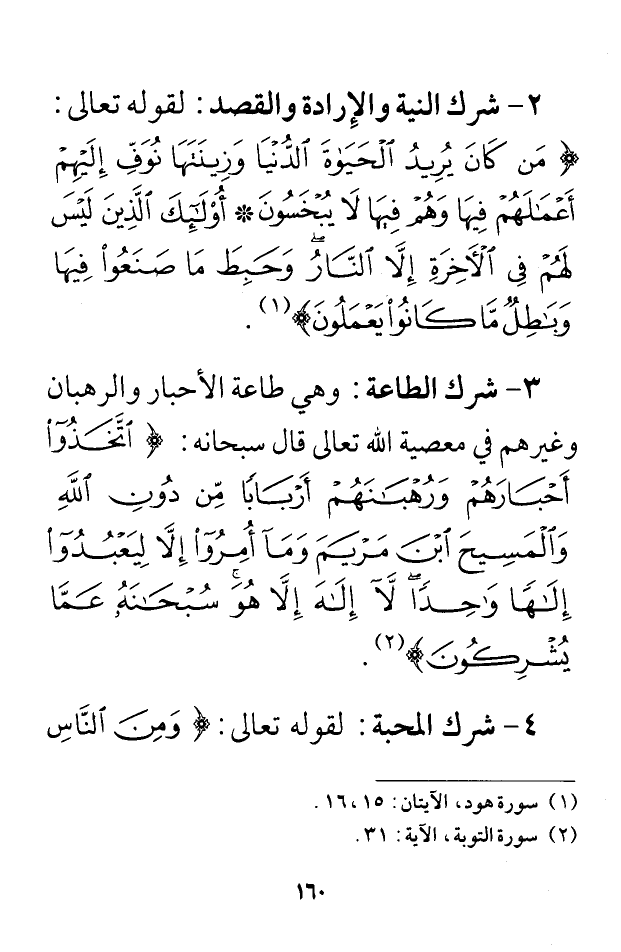 ٢- شرك النية والإرادة والقصد : لقوله تعالى :
﴿ مَن كَانَ يُرِيدُ ٱلْحَيَوٰةَ ٱلدُّنْيَا وَزِينَتَهَا نُوَفِّ إِلَيْهِمْ
أَعْمَٰلَهُمْ فِيهَا وَهُمْ فِيهَا لَا يُبْخَسُونَ * أُوْلَٰٓئِكَ ٱلَّذِينَ لَيْسَ
لَهُمْ فِي ٱلْأٓخِرَةِ إِلَّا ٱلنَّارُۖ وَحَبِطَ مَا صَنَعُواْ فِيهَا
وَبَٰطِلٌ مَّا كَانُواْ يَعْمَلُونَ﴾(١) .
٣- شرك الطاعة : وهي طاعة الأحبار والرهبان
وغيرهم في معصية الله تعالى قال سبحانه : ﴿ ٱتَّخَذُوٓاْ
أَحْبَارَهُمْ وَرُهْبَٰنَهُمْ أَرْبَابًا مِّن دُونِ ٱللَّهِ
وَٱلْمَسِيحَ ٱبْنَ مَرْيَمَ وَمَآ أُمِرُوٓاْ إِلَّا لِيَعْبُدُوٓاْ
إِلَٰهًا وَٰحِدًاۖ لَّآ إِلَٰهَ إِلَّا هُوَۚ سُبْحَٰنَهُۥ عَمَّا
يُشْرِكُونَ﴾(٢) .
٤- شرك المحبة : لقوله تعالى : ﴿ وَمِنَ ٱلنَّاسِ
(١) سورة هود، الآيتان : ١٥، ١٦ .
(٢) سورة التوبة، الآية : ٣١ .
١٦٠